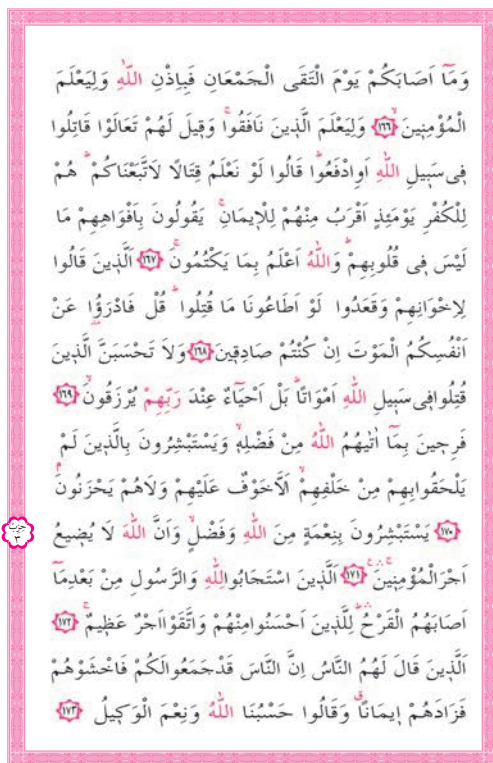 وَمَٓا اَصَابَكُمْ يَوْمَ الْتَقَى الْجَمْعَانِ فَبِاِذْنِ اللّٰهِ وَلِيَعْلَمَ
الْمُؤْمِنٖينَۙ ﴿١٦٦﴾ وَلِيَعْلَمَ الَّذٖينَ نَافَقُواۚ وَقٖيلَ لَهُمْ تَعَالَوْا قَاتِلُوا
فٖى سَبٖيلِ اللّٰهِ اَوِادْفَعُواۜ قَالُوا لَوْ نَعْلَمُ قِتَالًا لَاتَّبَعْنَاكُمْۜ هُمْ
لِلْكُفْرِ يَوْمَئِذٍ اَقْرَبُ مِنْهُمْ لِلْاٖيمَانِۚ يَقُولُونَ بِاَفْوَاهِهِمْ مَا
لَيْسَ فٖى قُلُوبِهِمْۜ وَاللّٰهُ اَعْلَمُ بِمَا يَكْتُمُونَۚ ﴿١٦٧﴾ اَلَّذٖينَ قَالُوا
لِاِخْوَانِهِمْ وَقَعَدُوا لَوْ اَطَاعُونَا مَا قُتِلُواۜ قُلْ فَادْرَؤُا عَنْ
اَنْفُسِكُمُ الْمَوْتَ اِنْ كُنْتُمْ صَادِقٖينَ ﴿١٦٨﴾ وَلَا تَحْسَبَنَّ الَّذٖينَ
قُتِلُوا فٖى سَبٖيلِ اللّٰهِ اَمْوَاتًاۜ بَلْ اَحْيَٓاءٌ عِنْدَ رَبِّهِمْ يُرْزَقُونَۙ ﴿١٦٩﴾
فَرِحٖينَ بِمَٓا اٰتٰيهُمُ اللّٰهُ مِنْ فَضْلِهٖۙ وَيَسْتَبْشِرُونَ بِالَّذٖينَ لَمْ
يَلْحَقُوا بِهِمْ مِنْ خَلْفِهِمْۙ اَلَّا خَوْفٌ عَلَيْهِمْ وَلَا هُمْ يَحْزَنُونَۢ
﴿١٧٠﴾ يَسْتَبْشِرُونَ بِنِعْمَةٍ مِنَ اللّٰهِ وَفَضْلٍۙ وَاَنَّ اللّٰهَ لَا يُضٖيعُ
اَجْرَ الْمُؤْمِنٖينَۚۛ ﴿١٧١﴾ اَلَّذٖينَ اسْتَجَابُوا لِلّٰهِ وَالرَّسُولِ مِنْ بَعْدِ مَٓا
اَصَابَهُمُ الْقَرْحُۜۛ لِلَّذٖينَ اَحْسَنُوا مِنْهُمْ وَاتَّقَوْا اَجْرٌ عَظٖيمٌۚ ﴿١٧٢﴾
اَلَّذٖينَ قَالَ لَهُمُ النَّاسُ اِنَّ النَّاسَ قَدْ جَمَعُوا لَكُمْ فَاخْشَوْهُمْ
فَزَادَهُمْ اٖيمَانًاۗ وَقَالُوا حَسْبُنَا اللّٰهُ وَنِعْمَ الْوَكٖيلُ ﴿١٧٣﴾
حزب
٣